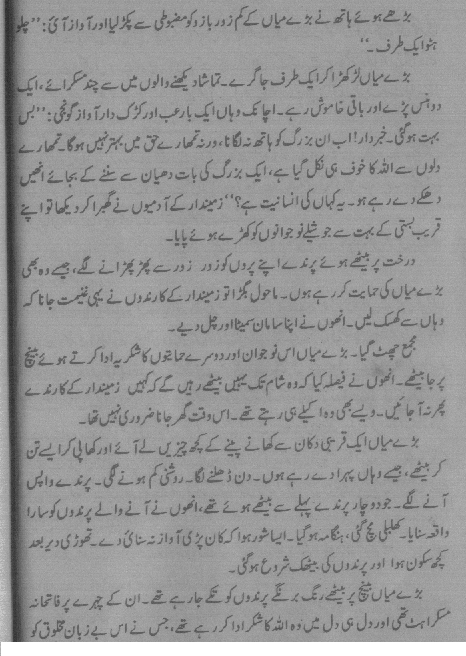 بڑھے ہوئے ہاتھ نے بڑے میاں کے کم زور بازو کو مضبوطی سے پکڑ لیا اور آواز آئی: ’’چلو
ہٹو ایک طرف۔‘‘
بڑے میاں لڑکھڑا کر ایک طرف جا گرے۔ تماشا دیکھنے والوں میں سے چند مسکرائے، ایک
دو ہنس پڑے اور باقی خاموش رہے۔ اچانک وہاں ایک بارعب اور کڑک دار آواز گونجی: ’’بس
بہت ہو گئی۔ خبردار! اب ان بزرگ کو ہاتھ نہ لگانا، ورنہ تمھارے حق میں بہتر نہیں ہوگا۔ تمھارے
دلوں سے اللہ کا خوف ہی نکل گیا ہے، ایک بزرگ کی بات دھیان سے سننے کے بجائے انھیں
دھکے دے رہے ہو۔ یہ کہاں کی انسانیت ہے؟‘‘ زمیندار کے آدمیوں نے گھبرا کر دیکھا تو اپنے
قریب بستی کے بہت سے جوشیلے نوجوانوں کو کھڑے ہوئے پایا۔
درخت پر بیٹھے ہوئے پرندے اپنے پروں کو زور زور سے پھڑپھڑانے لگے، جیسے وہ بھی
بڑے میاں کی حمایت کر رہے ہوں۔ ماحول بگڑا تو زمیندار کے کارندوں نے یہی غنیمت جانا کہ
وہاں سے کھسک لیں۔ انھوں نے اپنا سامان سمیٹا اور چل دیے۔
مجمع چھٹ گیا۔ بڑے میاں اس نوجوان اور دوسرے حمایتوں کا شکریہ ادا کرتے ہوئے بینچ
پر جا بیٹھے۔ انھوں نے فیصلہ کیا کہ وہ شام تک یہیں بیٹھے رہیں گے کہ کہیں زمیندار کے کارندے
پھر نہ آ جائیں۔ ویسے بھی وہ اکیلے ہی رہتے تھے۔ اس وقت گھر جانا ضروری نہیں تھا۔
بڑے میاں ایک قریبی دکان سے کھانے پینے کے کچھ چیزیں لے آئے اور کھا پی کر ایسے تن
کر بیٹھے، جیسے وہاں پہرا دے رہے ہوں۔ دن ڈھلنے لگا۔ روشنی کم ہونے لگی۔ پرندے واپس
آنے لگے۔ جو دو چار پرندے پہلے سے بیٹھے ہوئے تھے، انھوں نے آنے والے پرندوں کو سارا
واقعہ سنایا۔ کھلبلی مچ گئی، ہنگامہ ہو گیا۔ ایسا شور ہوا کہ کان پڑی آواز نہ سنائی دے۔ تھوڑی دیر بعد
کچھ سکون ہوا اور پرندوں کی بیٹھک شروع ہو گئی۔
بڑے میاں بینچ پر بیٹھے رنگ برنگے پرندوں کو تکے جا رہے تھے۔ ان کے چہرے پر فاتحانہ
مسکراہٹ تھی اور دل ہی دل میں وہ اللہ کا شکر ادا کر رہے تھے، جس نے اس بے زبان مخلوق کو